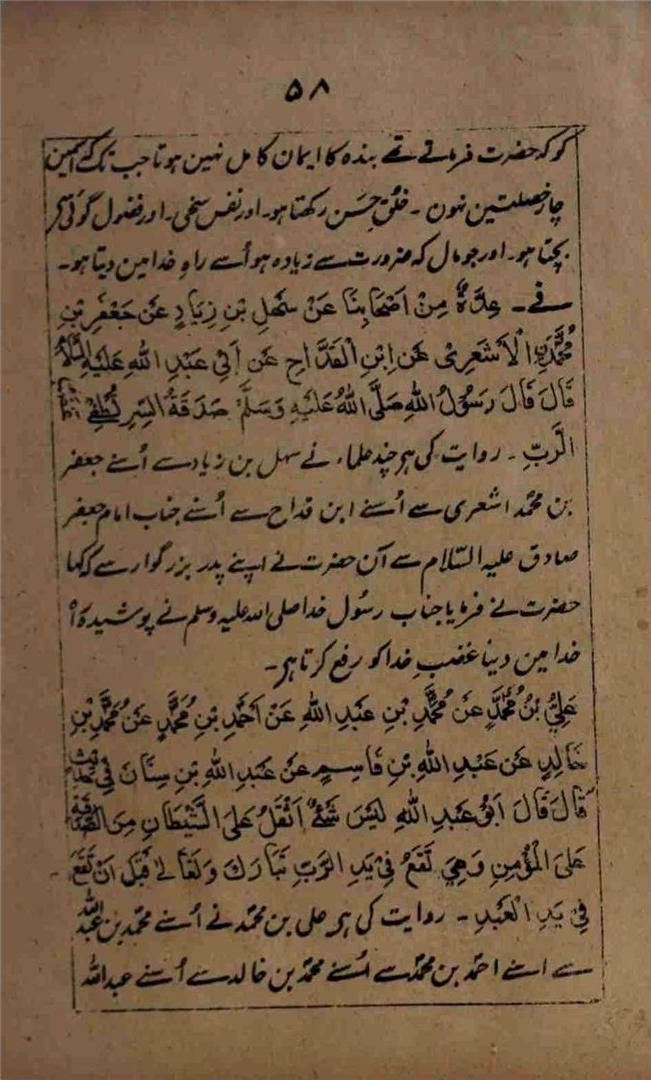 ۵۸
کو کہ حضرت فرماتے تھے بندہ کا ایمان کامل نہین ہوتا جب تک کہ اسمین
چار خصلتین نہون ۔ خلق حسن رکھتا ہو۔ اور نفس سخی ۔ اور فضول گوئی سے
بچتا ہو۔ اور جو مال کہ ضرورت سے زیادہ ہو اُسے راہِ خدا مین دیتا ہو۔
فے ۔ عِدَّةٌ مِنْ اَصْحَابِنَا عَنْ سَهْلِ بْنِ زِيَادٍ عَنْ جَعْفَرِ بْنِ
مُحَمَّدِ الْاَشْعَرِیْ عَنِ ابْنِ الْقَدَّاحِ عَنْ اَبِیْ عَبْدِ اللهِ عَلَيْهِ السَّلَامُ
قَالَ قَالَ رَسُوْلُ اللهِ صَلَّی اللهُ عَلَيْهِ وَسَلَّمَ صَدَقَةُ السِّرِّ تُطْفِیْ
الرَّبِّ ۔ روایت کی ہر چند علماء نے سہل بن زیاد سے اُسنے جعفر
بن محمّد اشعری سے اُسنے ابن قداح سے اُسنے جناب امام جعفر
صادق علیہ السّلام سے آن حضرت نے اپنے پدر بزرگوار سے کہ کہا
حضرت نے فرمایا جناب رسُول خدا صلی اللہ علیہ وسلم نے پوشیدہ
خدا مین دینا غضبِ خدا کو رفع کرتا ہر ۔
عَلِیُّ بْنُ مُحَمَّدٍ عَنْ مُحَمَّدِ بْنِ عَبْدِ اللهِ عَنْ اَحْمَدِ بْنِ مُحَمَّدٍ عَنْ مُحَمَّدِ بْنِ
خَالِدٍ عَنْ عَبْدِ اللهِ بْنِ قَاسِمٍ عَنْ عَبْدِ اللهِ بْنِ سِنَانَ فِیْ حَدِيْثٍ
قَالَ قَالَ اَبُوْ عَبْدِ اللهِ لَيْسَ شَیْءٌ اَثْقَلُ عَلَی الشَّيْطَانِ مِنَ الصَّدَقَةِ
عَلَی الْمُؤْمِنِ وَهِیَ تَقَعُ فِیْ يَدِ الرَّبِّ تَبَارَكَ وَتَعَالٰی قَبْلَ اَنْ تَقَعَ
فِیْ يَدِ الْعَبْدِ ۔ روایت کی ہر علی بن محمّد نے اُسنے محمّد بن عبد اللہ
سے اسنے احمّد بن محمّد سے اُسنے محمّد بن خالد سے اُسنے عبد اللہ